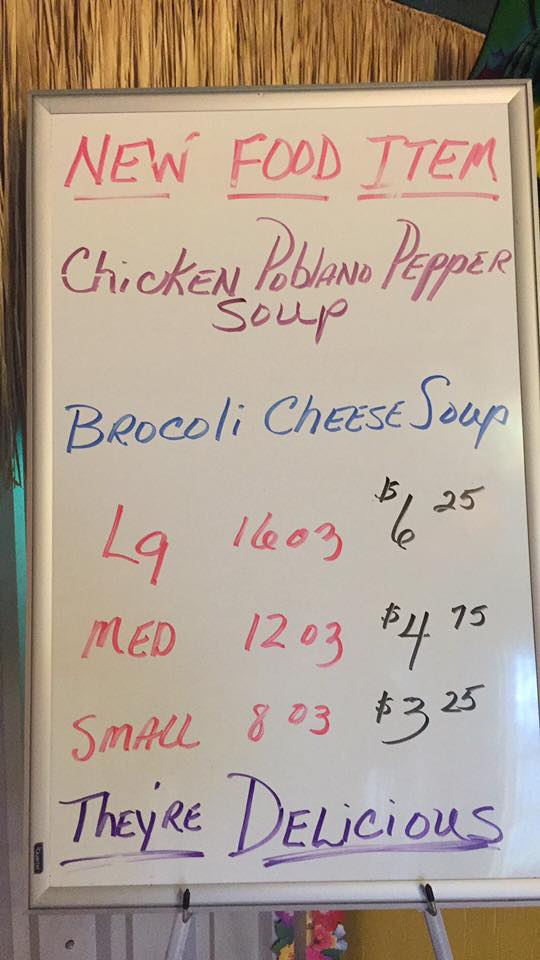 NEW FOOD ITEM
Chicken Poblano Pepper
Soup
Brocoli Cheese Soup
Lg 16oz $6 25
MED 12 oz $4 75
SMALL 8 oz $3 25
They're Delicious